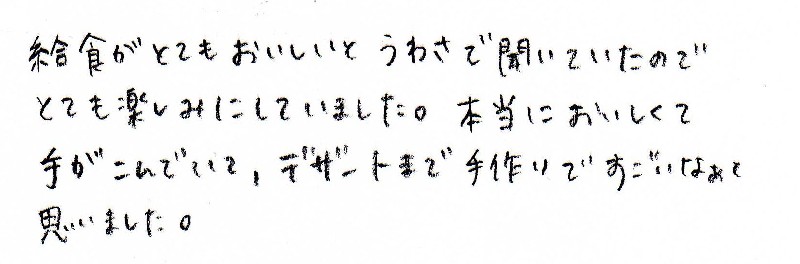 給食がとてもおいしいと うわさで聞いていたので
とても楽しみにしていました。本当においしくて
手がこんでいて、デザートまで手作りですごいなぁと
思いました。